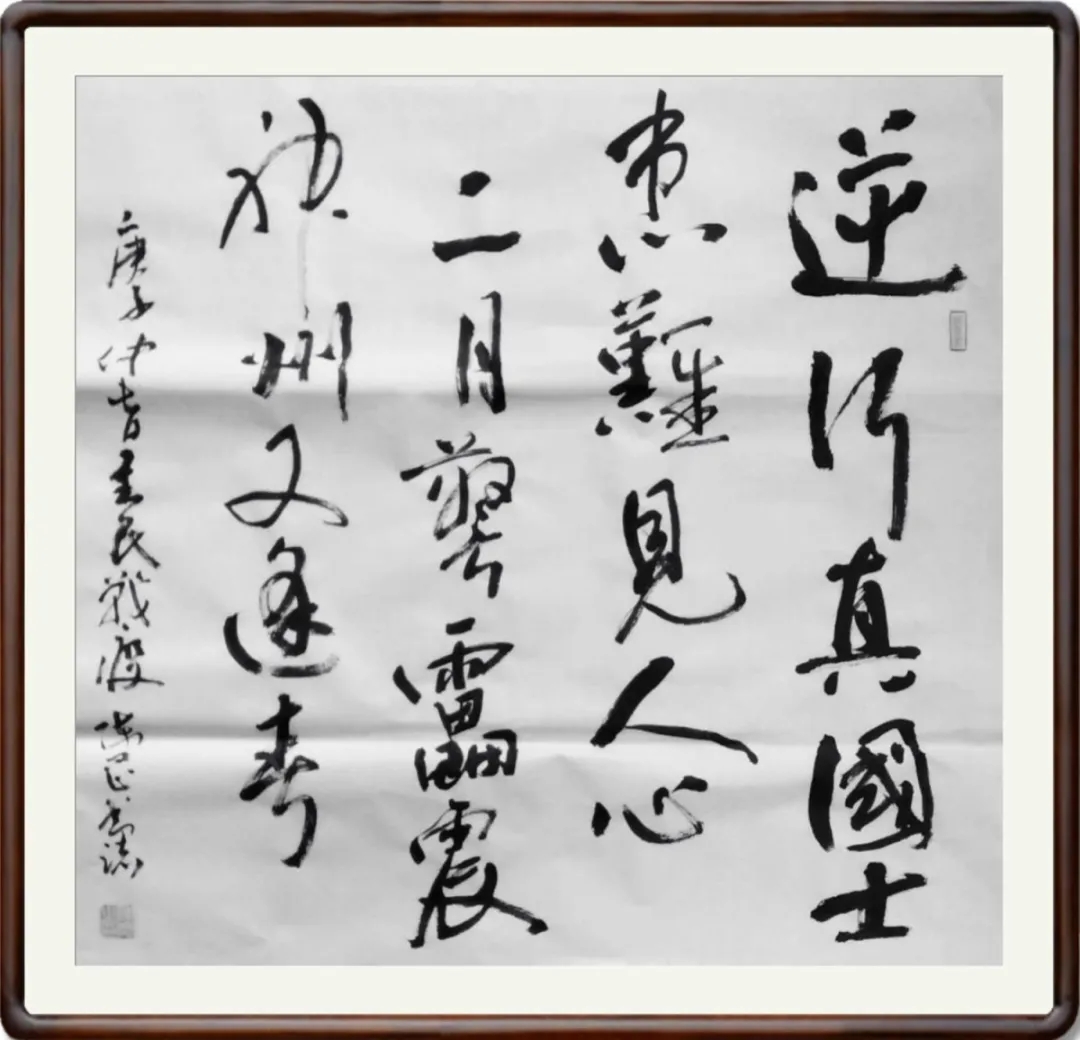 逆行真國士
患難見人心
二月驚靁震
神州又逢春
庚子仲春全民戰疫